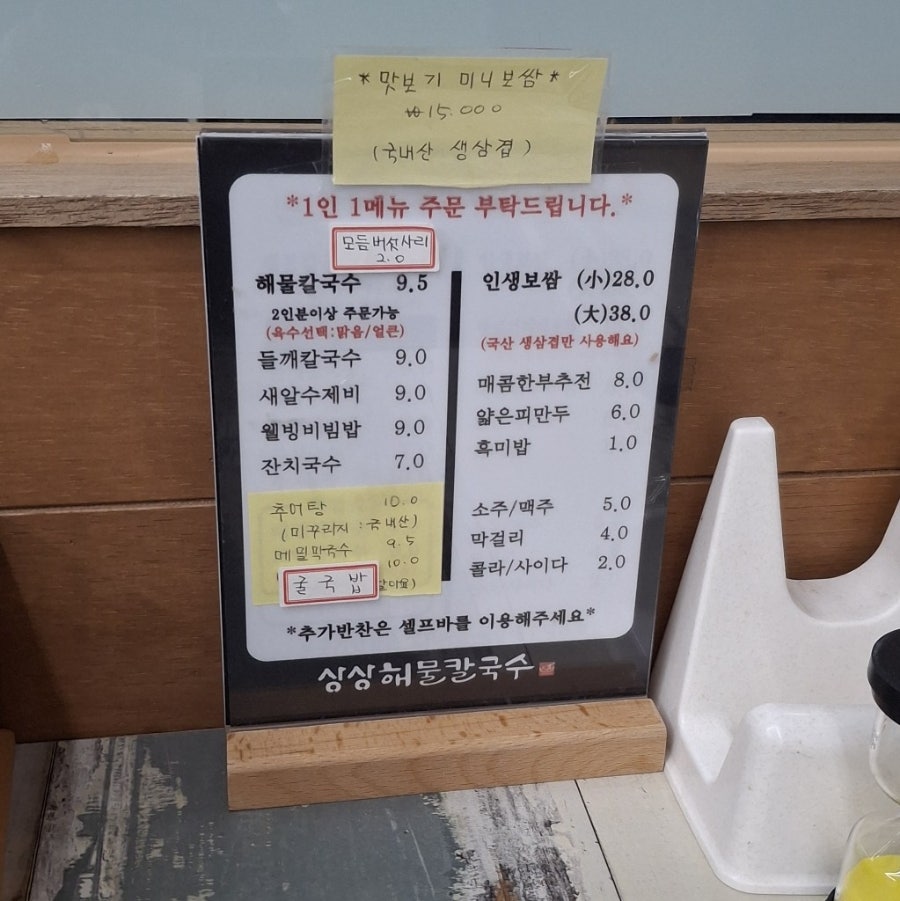 *맛보기 미니보쌈*
₩15.000
(국내산 생삼겹)
*1인 1메뉴 주문 부탁드립니다.*
모듬버섯사리
2.0
해물칼국수 9.5
2인분이상 주문가능
(육수선택:맑음/얼큰)
들깨칼국수 9.0
새알수제비 9.0
웰빙비빔밥 9.0
잔치국수 7.0
추어탕 10.0
(미꾸라지 : 국내산)
메밀막국수 9.5
굴국밥 10.0
인생보쌈 (小)28.0
(大)38.0
(국산 생삼겹만 사용해요)
매콤한부추전 8.0
얇은피만두 6.0
흑미밥 1.0
소주/맥주 5.0
막걸리 4.0
콜라/사이다 2.0
*추가반찬은 셀프바를 이용해주세요*
상상해물칼국수